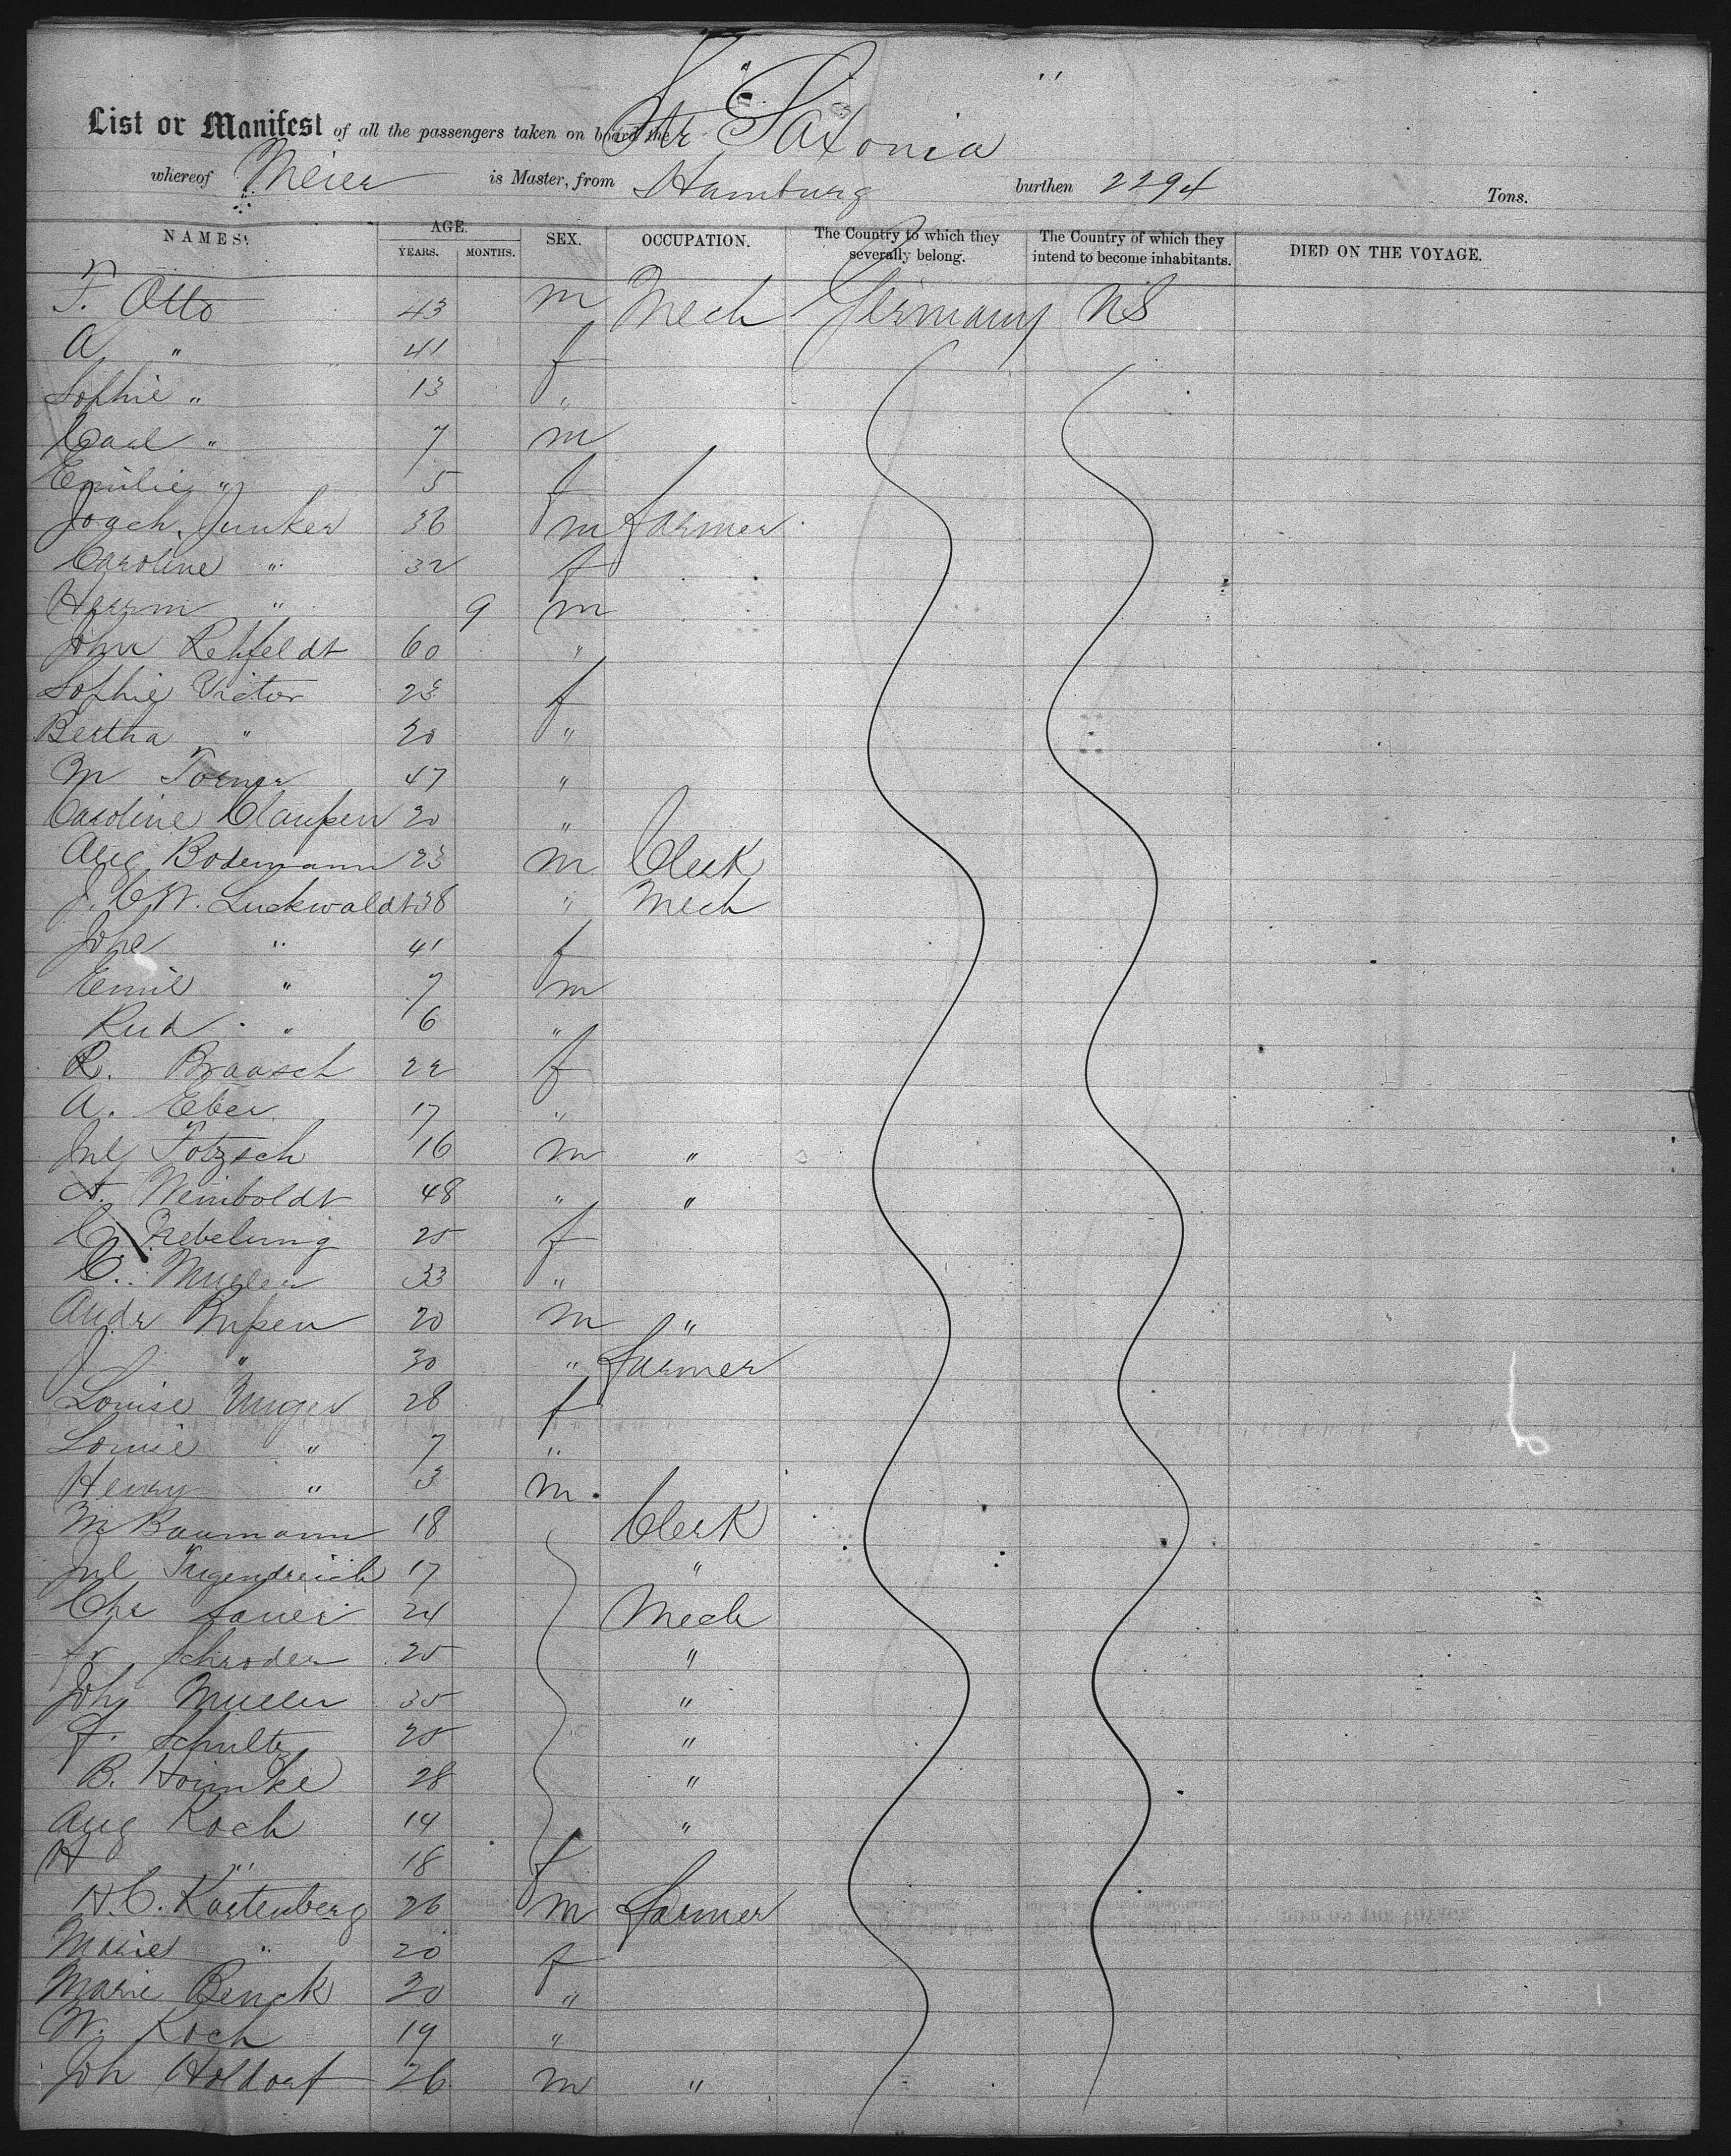 List or Manifest of all the passengers taken on board the Str Saxonia
whereof Meier is Master, from Hamburg burthen 2294 Tons.
NAMES. AGE. YEARS. MONTHS. SEX. OCCUPATION. The Country to which they severally belong. The Country of which they intend to become inhabitants. DIED ON THE VOYAGE.
F. Otto 43 m Mech Germany US
A " 41 f
Sophie " 13 "
Carl " 7 m
Emilie " 5 f
Joach. Junker 36 m farmer
Caroline " 32 f
Herrm " 9 m
John Rehfeldt 60 "
Sophie Victor 23 f
Bertha " 20 "
M 47 "
Caroline Claussen 20 "
Aug Bodemann 23 m Clerk
J. C. W. Luckwaldt 38 " Mech
Johe " 41 f
Emil " 7 m
Rud " 6 "
R. Braasch 22 f
A. Eber 17 "
Jul Totzsch 16 m "
A. Weinboldt 48 " "
C. Nebelung 25 f
C. Mueller 33 "
Andr 20 m "
J " 30 " farmer
Louise Unger 28 f
Louise " 7 "
Henry " 3 m
M Baumann 18 Clerk
Jul Tugendreich 17 "
Chr Sauer 24 Mech
Fr Schroder 25 "
Joh Mueller 35 "
F. Schultz 25 "
B. Hoimke 28 "
Aug Koch 19 "
H " 18 f
H. C. Kortenberg 26 m farmer
Marie " 20 f
Marie Benck 20 "
W. Koch 19 "
Joh Holdorf 26 m "